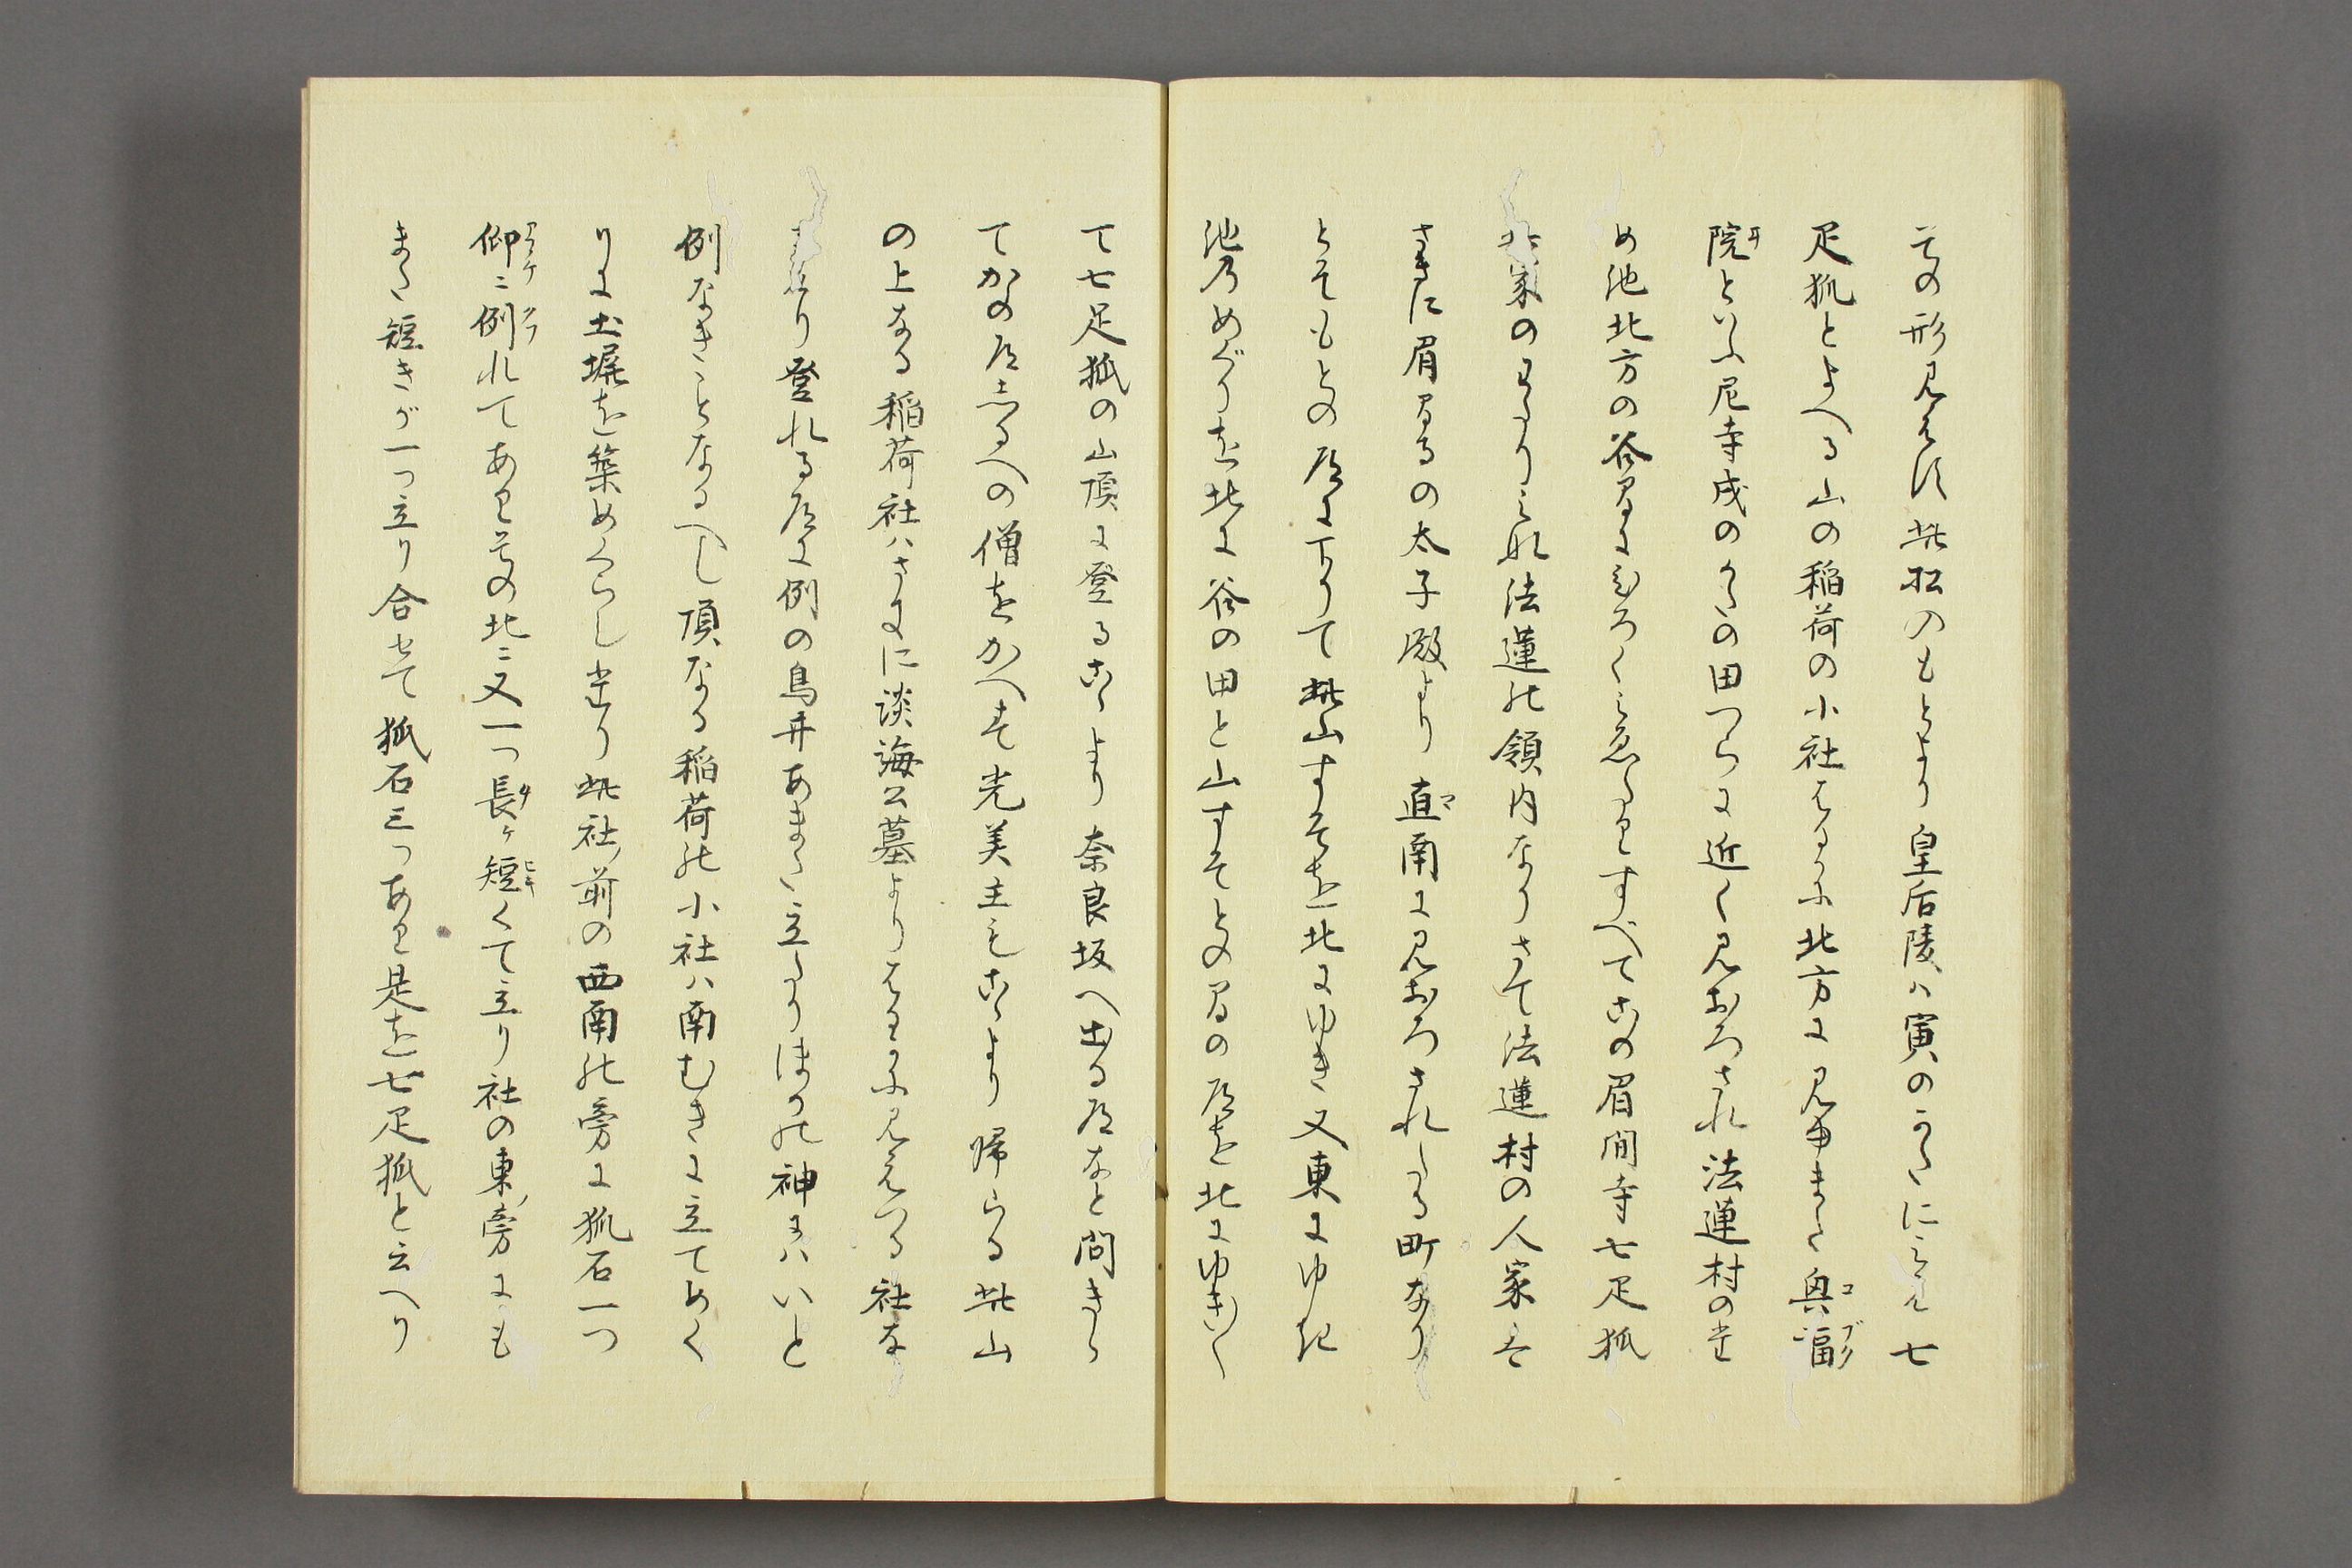 其の形見えす此松のもとより皇后陵ハ寅のかたにみえ七
疋狐とよへる山の稲荷の小社はるかに北方に見ゆまた興福
院といふ尼寺戌のかたの田つらに近く見おろされ法蓮村の堂
め池北方の谷間にひろくみえたりすべてこの眉間寺七疋狐
北家のあたりみな法蓮の領内なりさて法蓮村の人家は
さきに眉間寺の太子殿より直南に見おろされたる町なり
とそもとの道に下りて此山すそを北にゆき又東にゆき
池のめぐりを北に谷の田と山すそとの間の道を北にゆき〳〵
て七疋狐の山頂に登るこゝより奈良坂へ出る道なと問きゝ
てかの道しるへの僧をかへす光美主もこゝより帰らる此山
の上なる稲荷社ハさきに談海公墓よりはるかに見えつる社な
りけり登れる道に例の鳥井あまた立たりほかの神にハいと
例なきことなるへし頂なる稲荷の小社ハ南むきに立てめく
りに土塀を築めくらしたり此社ノ前の西南の傍に狐石一つ
仰ニ倒れてあり其の北ニ又一つ長ヶ短くて立り社の東ノ傍にも
また短きが一つ立り合せて狐石三つあり是を七疋狐と云へり